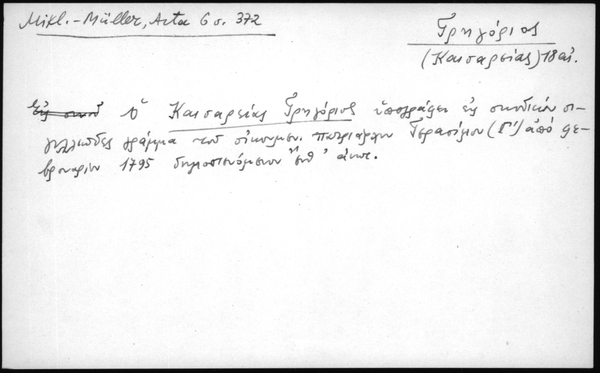 Mikl.-Müller, Acta 6 σ. 372
Γρηγόριος
(Καισαρείας) 18 αἰ.
Εἰς Ὁ Καισαρείας Γρηγόριος ὑπογράφει εἰς συνοδικὸν σι-
γιλλιῶδες γράμμα τοῦ οἰκουμεν. πατριάρχου Γερασίμου (Γ') ἀπὸ φε-
βρουαρίου 1795 δημοσιευόμενον ἔνθ' ἀνωτ.